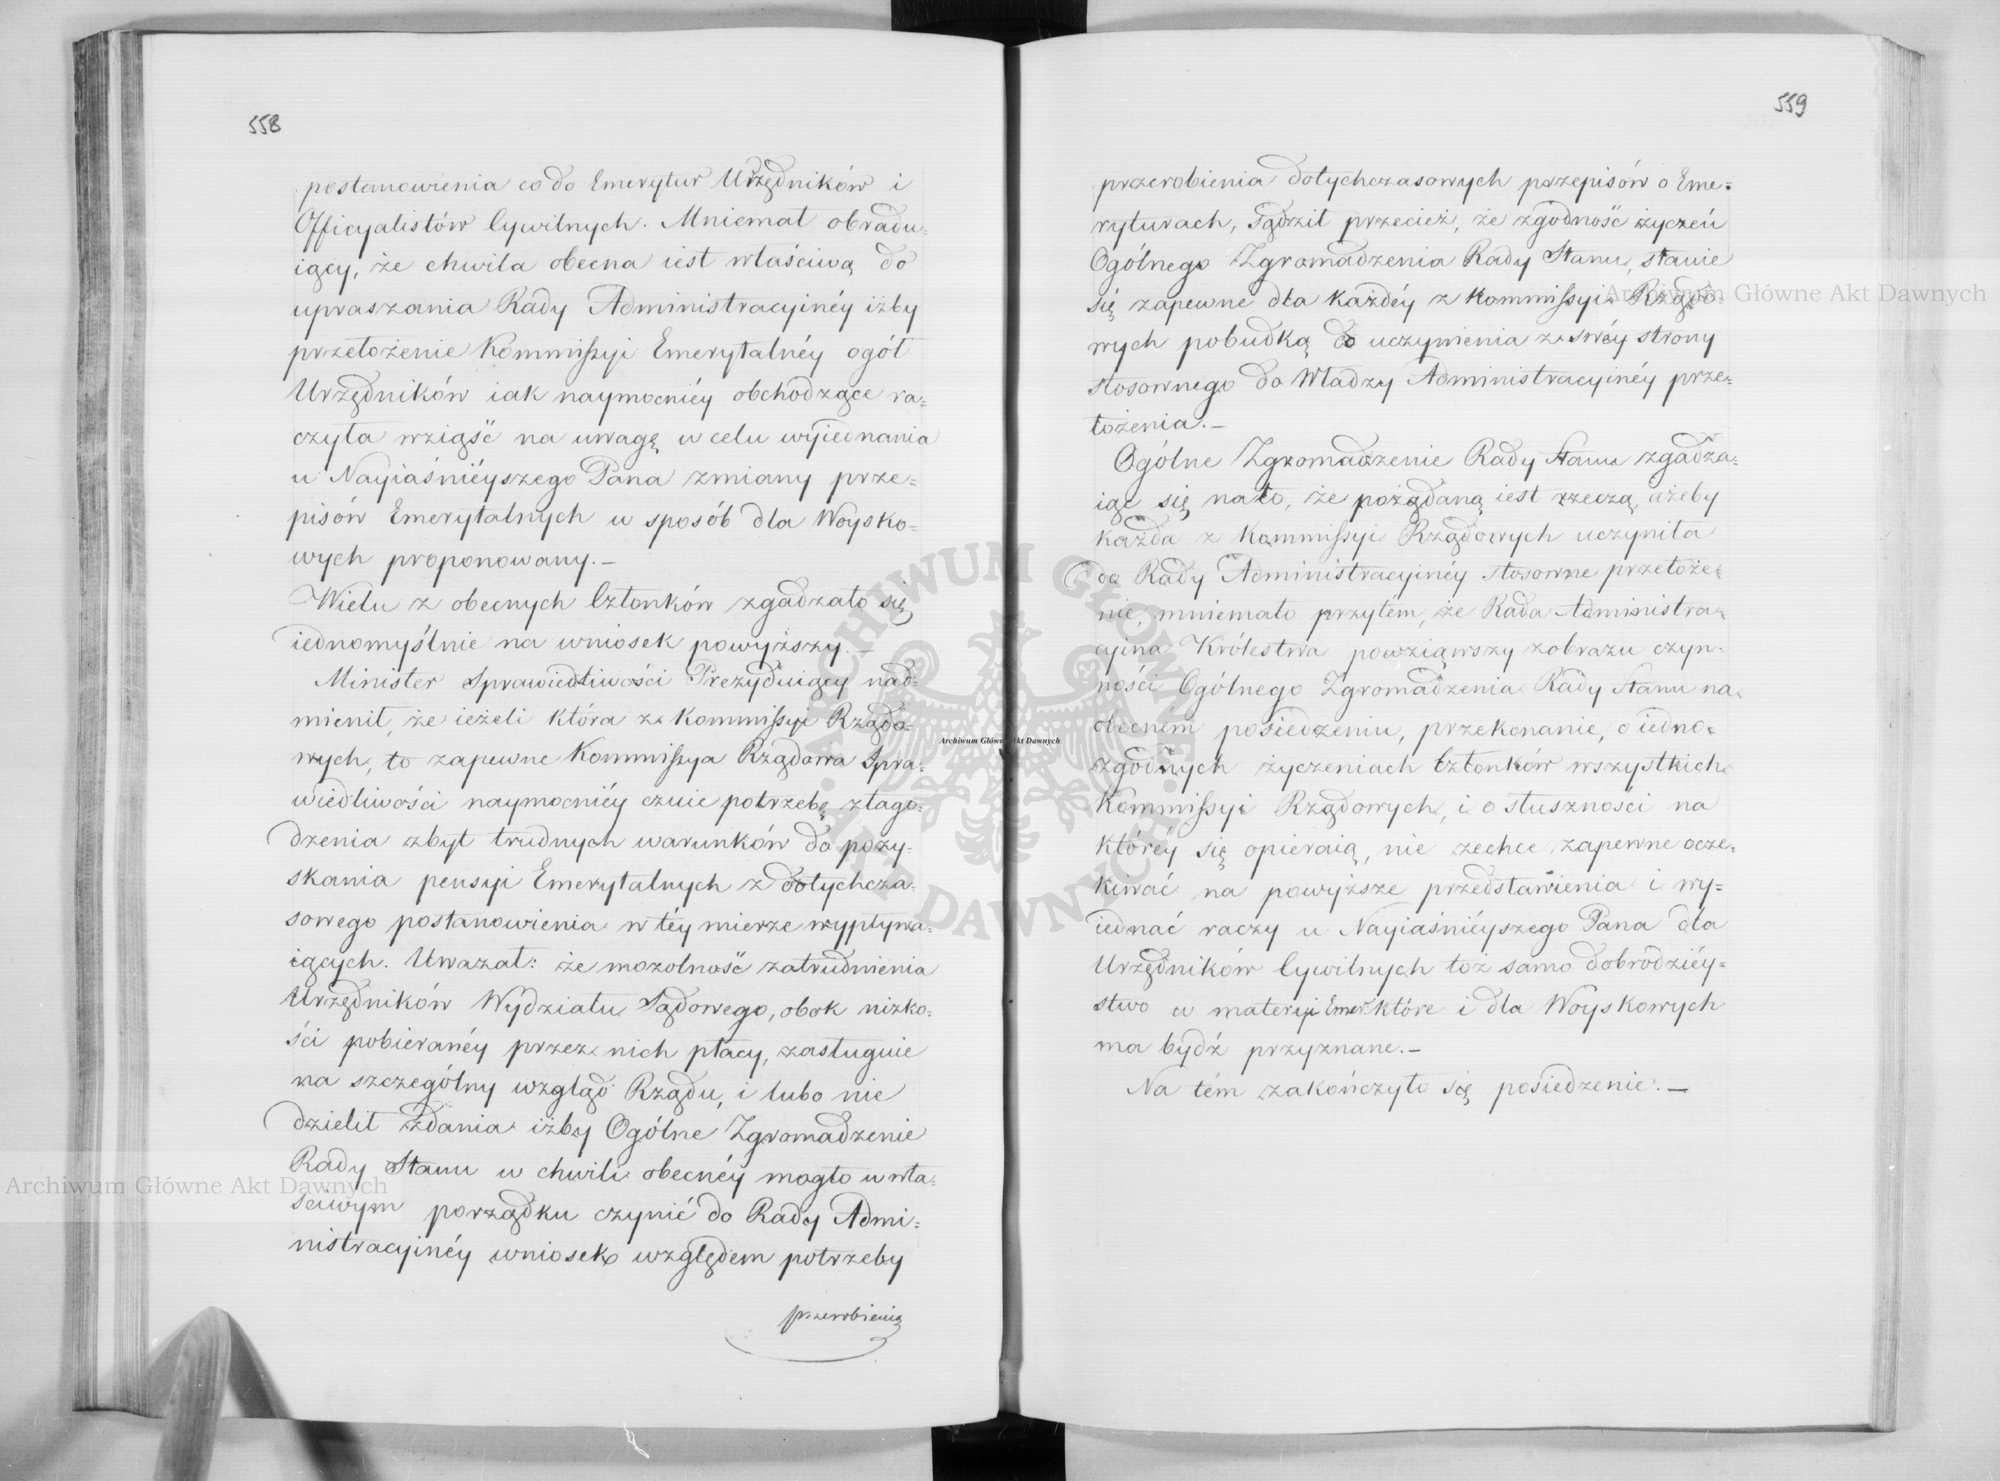 558
postanowienia co do Emerytur Urzędników i
Officyalistów Cywilnych. Mniemał obradu=
iący, że chwila obecna iest właściwą do
upraszania Rady Administracyinéy iżby
przełożenie Kommissyi Emerytalnéy ogół
Urzędników iak naymocniéy obchodzące ra=
czyła wziąść na uwagę w celu wyiednania
u Nayiaśniéyszego Pana zmiany prze=
pisów Emerytalnych w sposób dla Woysko=
wych proponowany.—
Wielu z obecnych Członków zgadzało się
iednomyślnie na wniosek powyższy.—
Minister Sprawiedliwości Prezyduiący nad=
mienił, że ieżeli która z Kommissyi Rządo=
wych, to zapewne Kommissya Rządowa Spra=
wiedliwości naymocniéy czuie potrzebę złago=
dzenia zbyt trudnych warunków do pozy=
skania pensyi Emerytalnych z dotychcza=
sowego postanowienia w téy mierze wypływa=
iących. Uważał: że mozolność zatrudnienia
Urzędników Wydziału Sądowego, obok nizko=
ści pobieranéy przez nich płacy, zasługuie
na szczególny wzgląd Rządu, i lubo nie
dzielił zdania iżby Ogólne Zgromadzenie
Rady Stanu w chwili obecnéy mogło w wła=
sciwym porządku czynić do Rady Admi=
nistracyinéy wniosek względem potrzeby
przerobienia
559
przerobienia dotychczasowych przepisów o Eme=
ryturach, sądził przecież, że zgodność życzeń
Ogólnego Zgromadzenia Rady Stanu, stanie
się zapewne dla każdéy z Kommissyi Rządo=
wych pobudką do uczynienia z swéy strony
stosownego do Władzy Administracyinéy prze=
łożenia.—
Ogólne Zgromadzenie Rady Stanu zgadza=
iąc się na to, że pożądaną iest rzeczą, ażeby
każda z Kommissyi Rządowych uczyniła
do Rady Administracyinéy stosowne przełoże=
nie, mniemało przytém, że Rada Administra=
cyina Królestwa powziąwszy z obrazu czyn=
ności Ogólnego Zgromadzenia Rady Stanu na
obecném posiedzeniu, przekonanie, o iedno=
zgodnych życzeniach Członków wszystkich
Kommissyi Rządowych, i o słuszności na
któréy się opieraią, nie zechce zapewne ocze=
kiwać na powyższe przedstawienia i wy=
iednać raczy u Nayiaśniéyszego Pana dla
Urzędników Cywilnych toż samo dobrodziéy=
stwo w materyi Emer. które i dla Woyskowych
ma bydź przyznane.—
Na tém zakończyło się posiedzenie.—
Archiwum Główne Akt Dawnych
Archiwum Główne Akt Dawnych
Archiwum Główne Akt Dawnych
ARCHIWUM GŁÓWNE AKT DAWNYCH